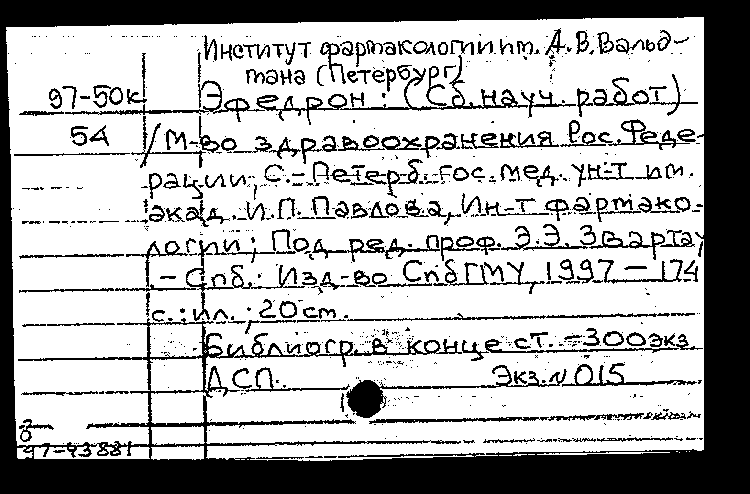 Институт фармакологии им. А.В. Вальд-
мана (Петербург)
97-50к Эфедрон: (Сб. науч. работ)
54 / М-во здравоохранения Рос. Феде-
рации, С.-Петерб. гос. мед. ун-т им.
акад. И.П. Павлова, Ин-т фармако-
логии; Под ред. проф. Э.Э. Звартау
.- Спб.: Изд-во СпбГМУ, 1997 - 174
с.: ил.; 20 см.
Библиогр. в конце ст. - 300 экз
ДСП. Экз. N 015
97-43881